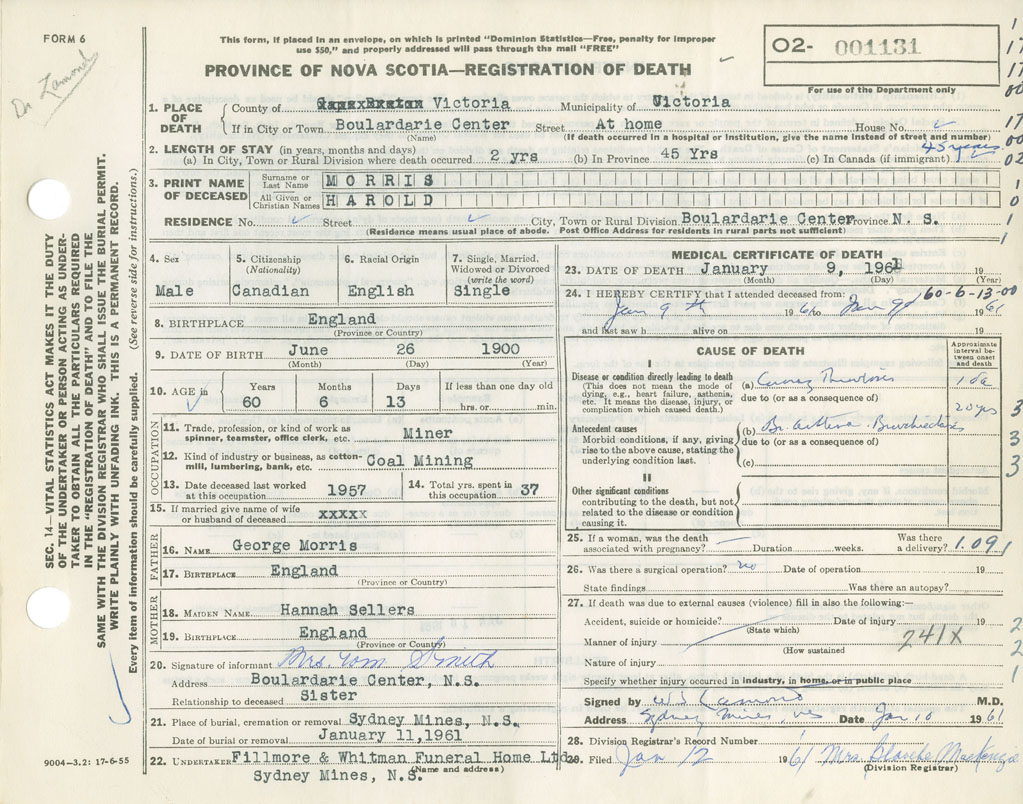 FORM 6
Dr Lamond
This form, if placed in an envelope, on which is printed "Dominion Statistics—Free, penalty for improper
use $50," and properly addressed will pass through the mail "FREE"
PROVINCE OF NOVA SCOTIA—REGISTRATION OF DEATH
O2- 001131
For use of the Department only
1. PLACE OF DEATH
County of Victoria Municipality of Victoria
If in City or Town Boulardarie Center Street At home House No.
(Name) (If death occurred in a hospital or institution, give the name instead of street and number)
2. LENGTH OF STAY (in years, months and days)
45 years
(a) In City, Town or Rural Division where death occurred 2 yrs (b) In Province 45 Yrs (c) In Canada (if immigrant)
3. PRINT NAME OF DECEASED
Surname or Last Name MORRIS
All Given or Christian Names HAROLD
RESIDENCE No. Street City, Town or Rural Division Boulardarie Center Province N. S.
(Residence means usual place of abode. Post Office Address for residents in rural parts not sufficient)
4. Sex
Male
5. Citizenship
(Nationality)
Canadian
6. Racial Origin
English
7. Single, Married,
Widowed or Divorced
(write the word)
Single
8. BIRTHPLACE England
(Province or Country)
9. DATE OF BIRTH June 26 1900
(Month) (Day) (Year)
10. AGE in
Years Months Days If less than one day old
60 6 13 hrs. or min.
OCCUPATION
11. Trade, profession, or kind of work as
spinner, teamster, office clerk, etc. Miner
12. Kind of industry or business, as cotton-
mill, lumbering, bank, etc. Coal Mining
13. Date deceased last worked
at this occupation 1957
14. Total yrs. spent in
this occupation 37
15. If married give name of wife
or husband of deceased xxxxx
FATHER
16. NAME George Morris
17. BIRTHPLACE England
(Province or Country)
MOTHER
18. MAIDEN NAME Hannah Sellers
19. BIRTHPLACE England
(Province or Country)
20. Signature of informant Mrs. Tom Smith
Address Boulardarie Center, N.S.
Relationship to deceased Sister
21. Place of burial, cremation or removal Sydney Mines, N.S.
Date of burial or removal January 11, 1961
22. UNDERTAKER Fillmore & Whitman Funeral Home Ltd.
(Name and address)
Sydney Mines, N.S.
MEDICAL CERTIFICATE OF DEATH
23. DATE OF DEATH January 9, 1961 19
(Month) (Day) (Year)
60-6-13-00
24. I HEREBY CERTIFY that I attended deceased from:
Jan 9th 1961 to Jan 9th 1961
and last saw h alive on 19
CAUSE OF DEATH
Approximate interval between onset and death
I
Disease or condition directly leading to death
(This does not mean the mode of
dying, e.g., heart failure, asthenia,
etc. It means the disease, injury, or
complication which caused death.)
(a)
due to (or as a consequence of)
20 yrs
Antecedent causes
Morbid conditions, if any, giving
rise to the above cause, stating the
underlying condition last.
(b) Br. asthma Bronchiectasis
due to (or as a consequence of)
(c)
II
Other significant conditions
contributing to the death, but not
related to the disease or condition
causing it.
25. If a woman, was the death
associated with pregnancy? Duration weeks. Was there
a delivery? 1.091
26. Was there a surgical operation? no Date of operation 19
State findings Was there an autopsy?
27. If death was due to external causes (violence) fill in also the following:—
Accident, suicide or homicide? Date of injury 19
(State which)
Manner of injury 241X
(How sustained
Nature of injury
Specify whether injury occurred in industry, in home, or in public place
Signed by W.S. Lamond M.D.
Address Sydney Mines, NS Date Jan 10 1961
28. Division Registrar's Record Number
29. Filed Jan 12 1961 Mrs Blanche MacKenzie
(Division Registrar)
SEC. 14—VITAL STATISTICS ACT MAKES IT THE DUTY
OF THE UNDERTAKER OR PERSON ACTING AS UNDER-
TAKER TO OBTAIN ALL THE PARTICULARS REQUIRED
IN THE "REGISTRATION OF DEATH" AND TO FILE THE
SAME WITH THE DIVISION REGISTRAR WHO SHALL ISSUE THE BURIAL PERMIT.
WRITE PLAINLY WITH UNFADING INK. THIS IS A PERMANENT RECORD.
Every item of information should be carefully supplied. (See reverse side for instructions.)
9004-3.2: 17-6-55
1
17
17
00
17
00
02
1
0
1
1
3
3
3
2
2
1